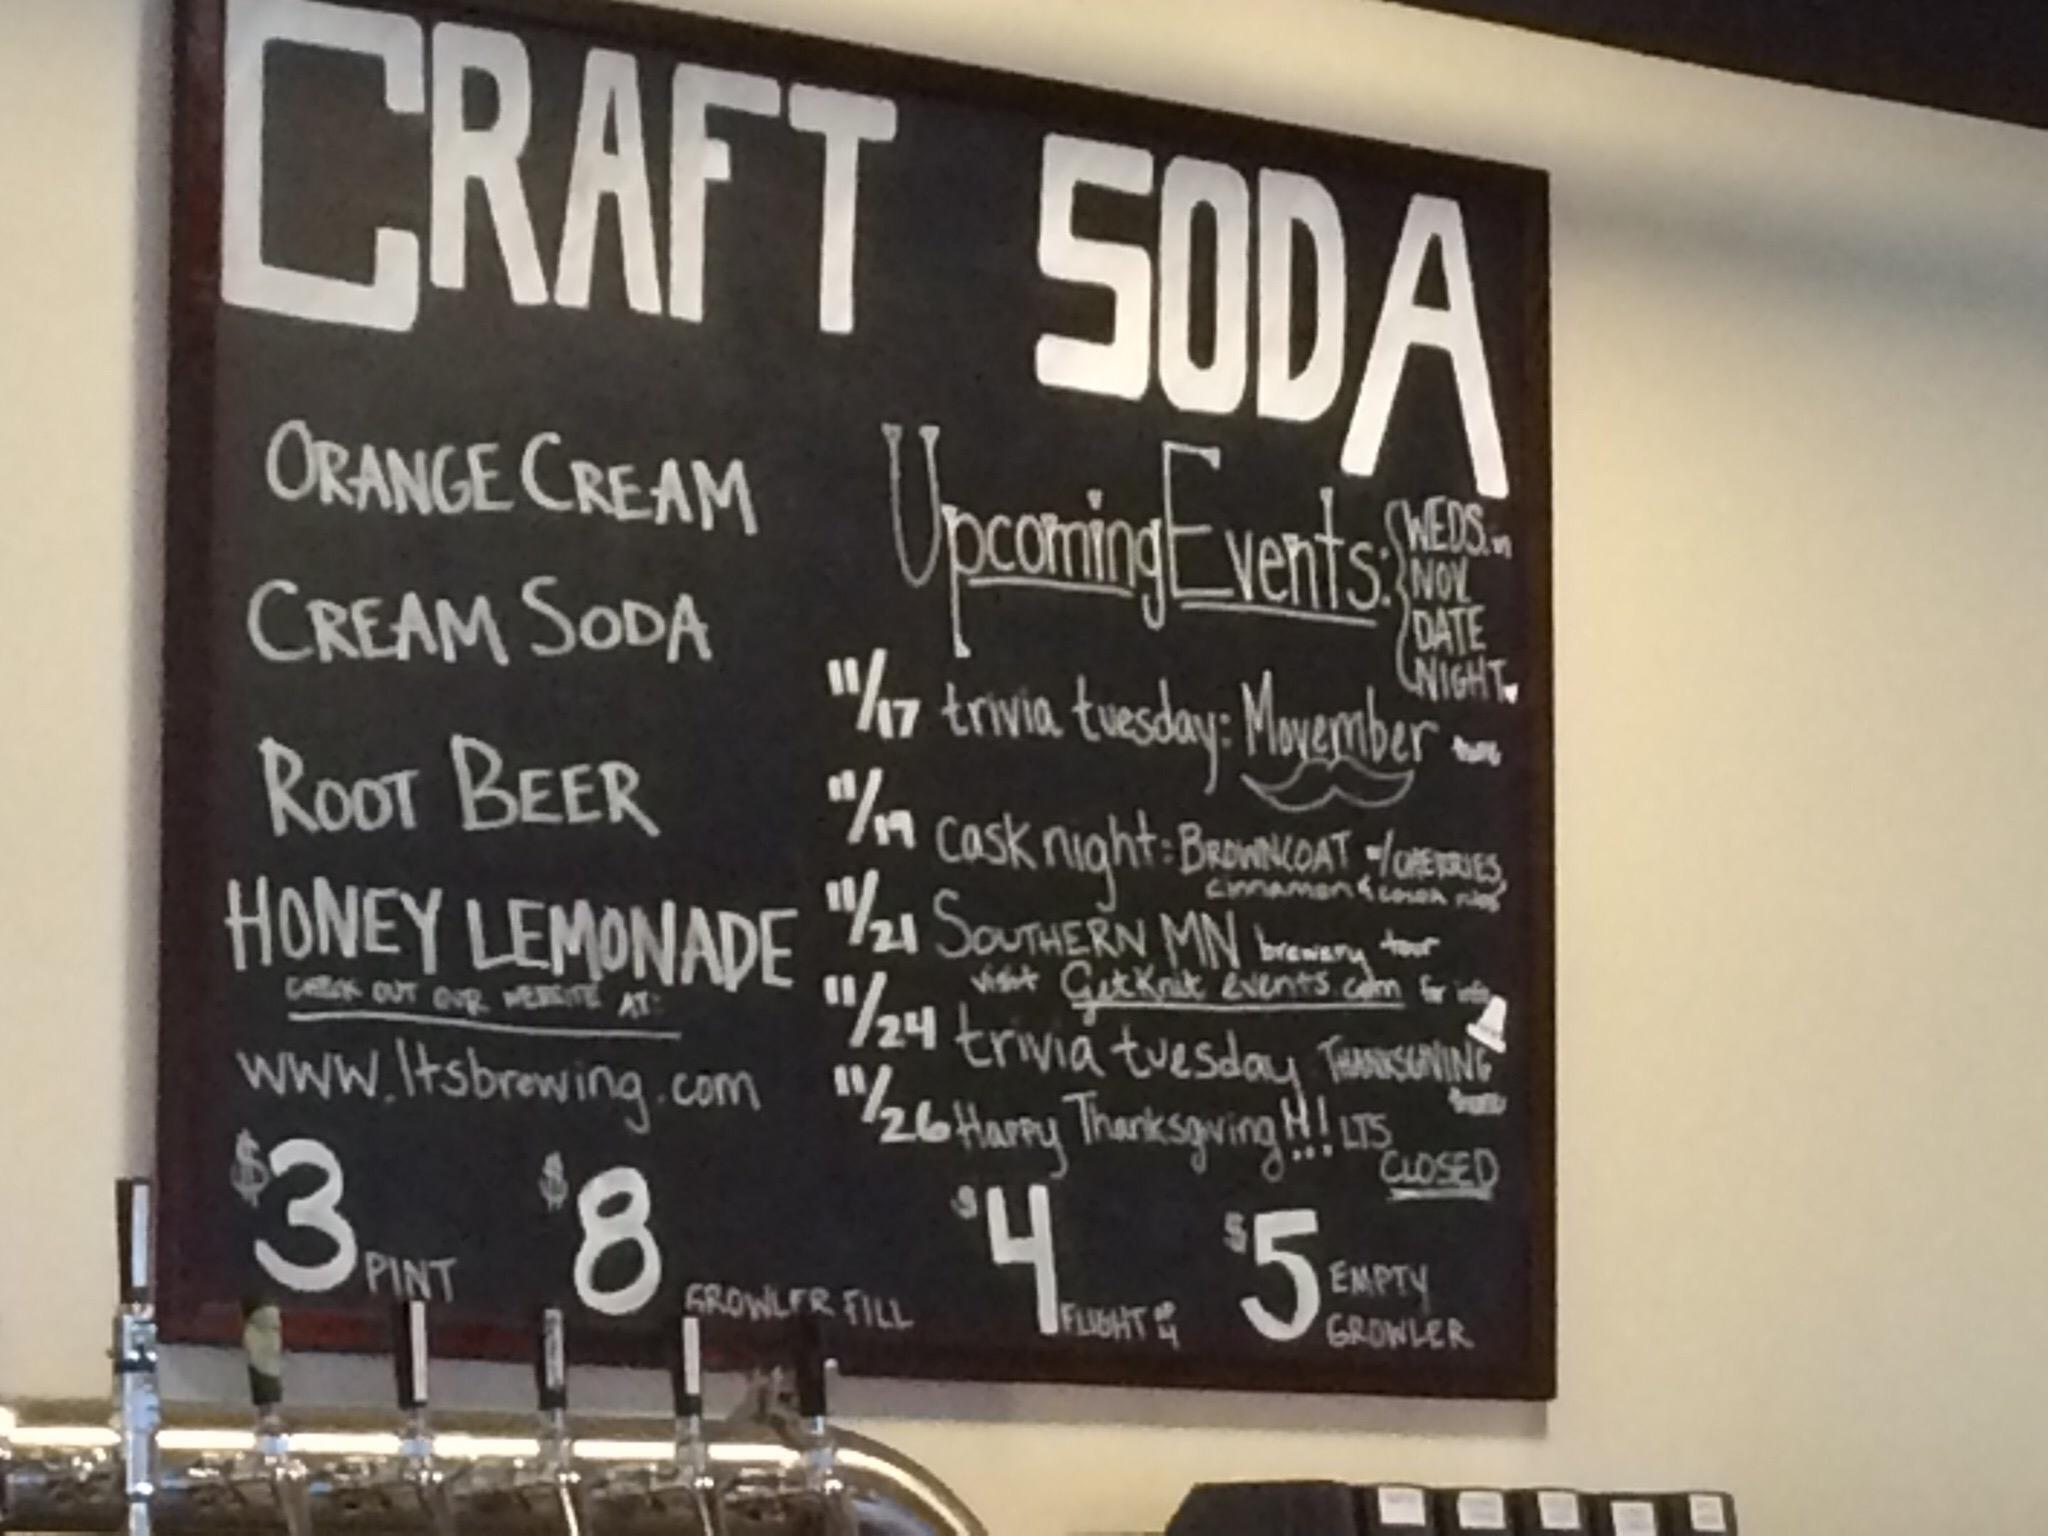 CRAFT SODA
ORANGE CREAM
CREAM SODA
ROOT BEER
HONEY LEMONADE
CHECK OUT OUR WEBSITE AT:
www.ltsbrewing.com
Upcoming Events:
WEDS. in
NOV.
DATE
NIGHT
11/17 trivia tuesday: Movember
11/19 cask night: BROWNCOAT w/CHERRIES,
cinnamon & cocoa nibs
11/21 SOUTHERN MN brewery tour
visit GetKnit events.com for info
11/24 trivia tuesday THANKSGIVING
11/26 Happy Thanksgiving!!! LTS
CLOSED
$3 PINT
$8 GROWLER FILL
$4 FLIGHT OF 4
$5 EMPTY
GROWLER